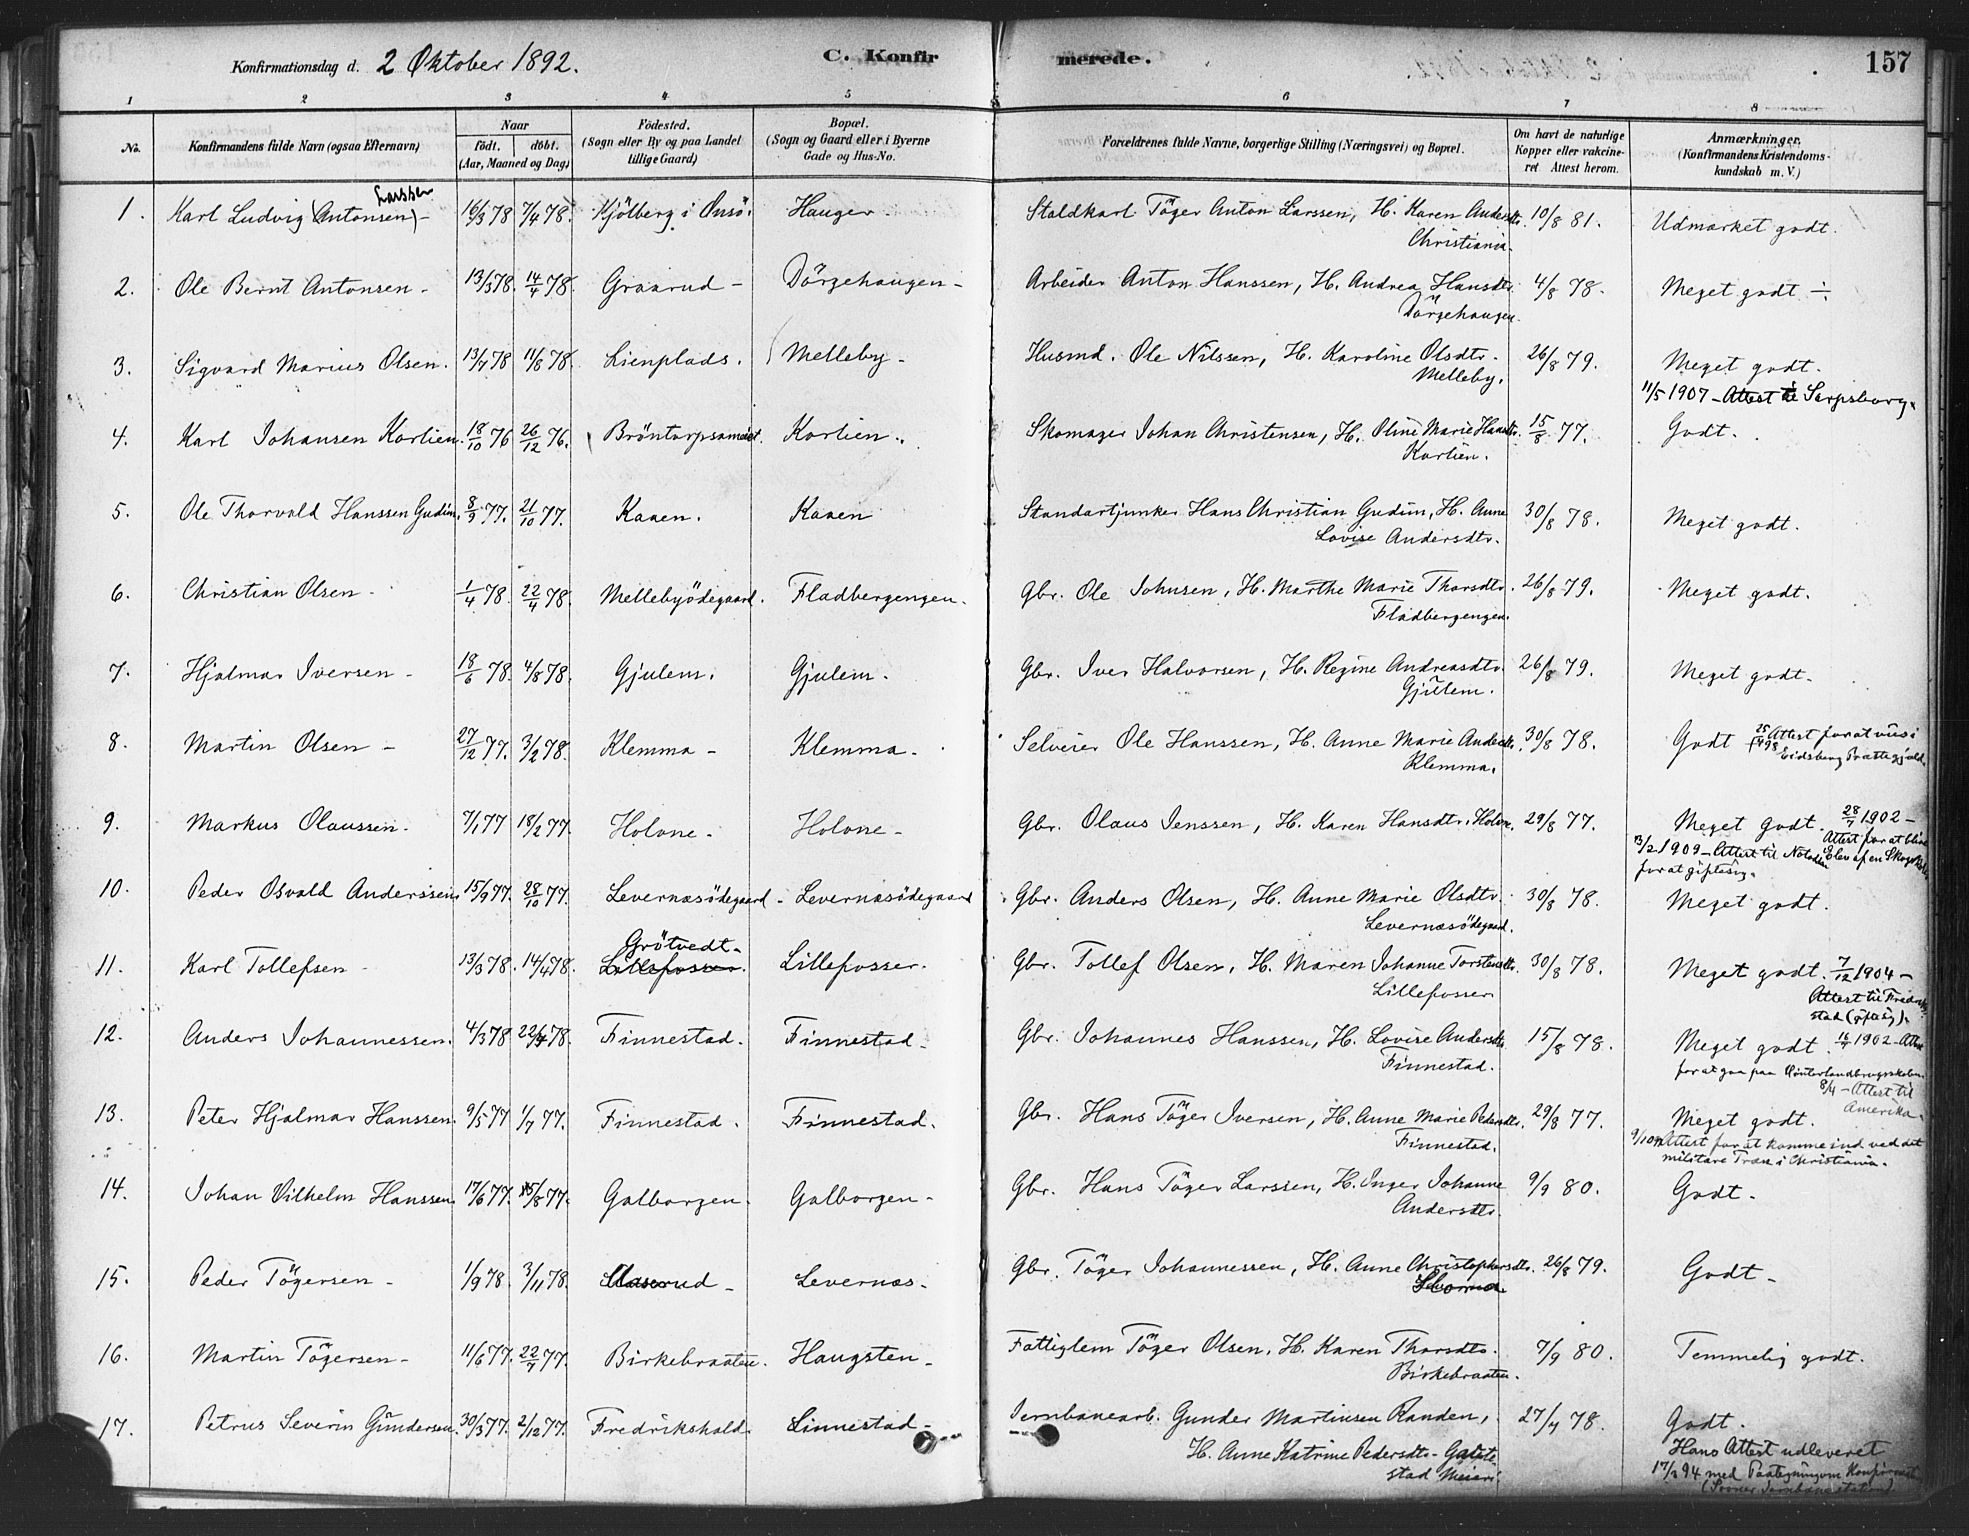 Konfirmationsdag d. 2 Oktober 1892. C. Konfirmerede. 157
1 2 3 4 5 6 7 8
No. Konfirmandens fulde Navn (ogsaa Efternavn) Naar födt. döbt. (Aar, Maaned og Dag) Födested. (Sogn eller By og paa Landet tillige Gaard) Bopæl. (Sogn og Gaard eller i Byerne Gade og Hus-No. Forældrenes fulde Navne, borgerlige Stilling (Næringsvei) og Bopæl. Om havt de naturlige Kopper eller vakcineret Attest herom. Anmærkninger. (Konfirmandens Kristendomskundskab m. V.)
Larssen
1. Karl Ludvig (Antonsen) - 16/3 78 7/4 78. Kjölberg i Onsö. Hauger Staldkarl Töger Anton Larssen, H. Karen Andersdtr. 10/8 81. Udmærket godt.
Christiania.
2. Ole Bernt Antonsen - 13/3 78. 14/4 78. Graarud - Dörgehaugen - Arbeider Anton Hanssen, H. Andrea Hansdtr. 4/8 78. Meget godt ÷
Dörgehaugen.
3. Sigvard Marius Olsen. 13/7 78 11/8 78. Lienplads. Melleby - Husmd. Ole Nilssen, H. Karoline Olsdtr. 26/8 79. Meget godt.
Melleby. 11/5 1907 - Attest til Sarpsborg.
4. Karl Johansen Kortien. 18/10 76 26/12 76. Bröntorpsameiet. Kortien. Skomager Johan Christensen, H. Oline Marie Hansdtr. 15/8 77. Godt.
Kortien.
5. Ole Thorvald Hanssen Gudim. 8/9 77. 21/10 77. Kaaen. Kaaen Standartjunker Hans Christian Gudim, H. Anne 30/8 78. Meget godt.
Lovise Andersdtr.
6. Christian Olsen - 1/4 78. 22/4 78. Mellebyödegaard. Fladbergengen. Gbr. Ole Johnsen, H. Marthe Marie Thorsdtr. 26/8 79. Meget godt.
Fladbergengen.
7. Hjalmar Iversen - 18/6 78. 4/8 78. Gjulem. Gjulem. Gbr. Iver Halvorsen, H. Regine Andreasdtr. 26/8 79. Meget godt.
Gjulem.
8. Martin Olsen - 27/12 77. 3/2 78. Klemma - Klemma. Selveier Ole Hanssen, H. Anne Marie Andersdtr. 30/8 78. Godt 25/4 98 Attest for at vies i
Klemma. Eidsberg Præstegjeld.
9. Markus Olaussen. 7/1 77 18/2 77. Holone - Holone - Gbr. Olaus Jenssen, H. Karen Hansdtr. Holone. 29/8 77. Meget godt. 28/7 1902 -
Attest for at blive
13/2 1909 - Attest til Notodden Elev af en Skogskole
for at gifte sig.
10. Peder Osvald Anderssen. 15/9 77. 28/10 77. Levernæsödegaard - Levernæsödegaard Gbr. Anders Olsen, H. Anne Marie Olsdtr. 30/8 78. Meget godt.
Levernæsödegaard.
Grötvedt.
11. Karl Tollefsen - 13/3 78. 14/4 78. Lillefosser. Lillefosser. Gbr. Tollef Olsen, H. Maren Johanne Torstensdtr. 30/8 78. Meget godt. 7/12 1904 -
Lillefosser Attest til Fredrikstad (gifte sig).
12. Anders Johannessen. 4/3 78 22/4 78. Finnestad. Finnestad - Gbr. Johannes Hanssen, H. Lovise Andersdtr. 15/8 78. Meget godt. 1902 - Attest
Finnestad. for at gaa paa Vinterlandbrugsskolen.
8/4 - Attest til
Amerika.
13. Peter Hjalmar Hanssen. 9/5 77 1/7 77. Finnestad. Finnestad. Gbr. Hans Töger Iversen, H. Anne Marie Pedersdtr. 29/8 77. Meget godt.
Finnestad. Attest for at komme ind ved det
militære Træn i Christiania.
14. Johan Vilhelm Hanssen. 17/6 77. 5/8 77. Galborgen. Galborgen - Gbr. Hans Töger Larssen, H. Inger Johanne 9/9 80. Godt.
Andersdtr.
15. Peder Tögersen - 1/9 78. 3/11 78. Levernæs. Gbr. Töger Johannessen, H. Anne Christophersdtr. 26/8 79. Godt -
16. Martin Tögersen - 11/6 77. 22/7 77. Birkebraaten. Haugsten - Fattiglem Töger Olsen, H. Karen Thorsdtr. 7/9 80. Temmelig godt.
Birkebraaten.
17. Petrus Severin Gundersen. 30/3 77. 2/12 77. Fredrikshald. Linnestad - Jernbanearb. Gunder Martinsen Randen, 27/7 78. Godt.
H. Anne Katrine Pedersdtr - Hans Attest udleveret
stad Meieri 17/3 94 med Paategning om Konfirmat.
(Jernbanestation)